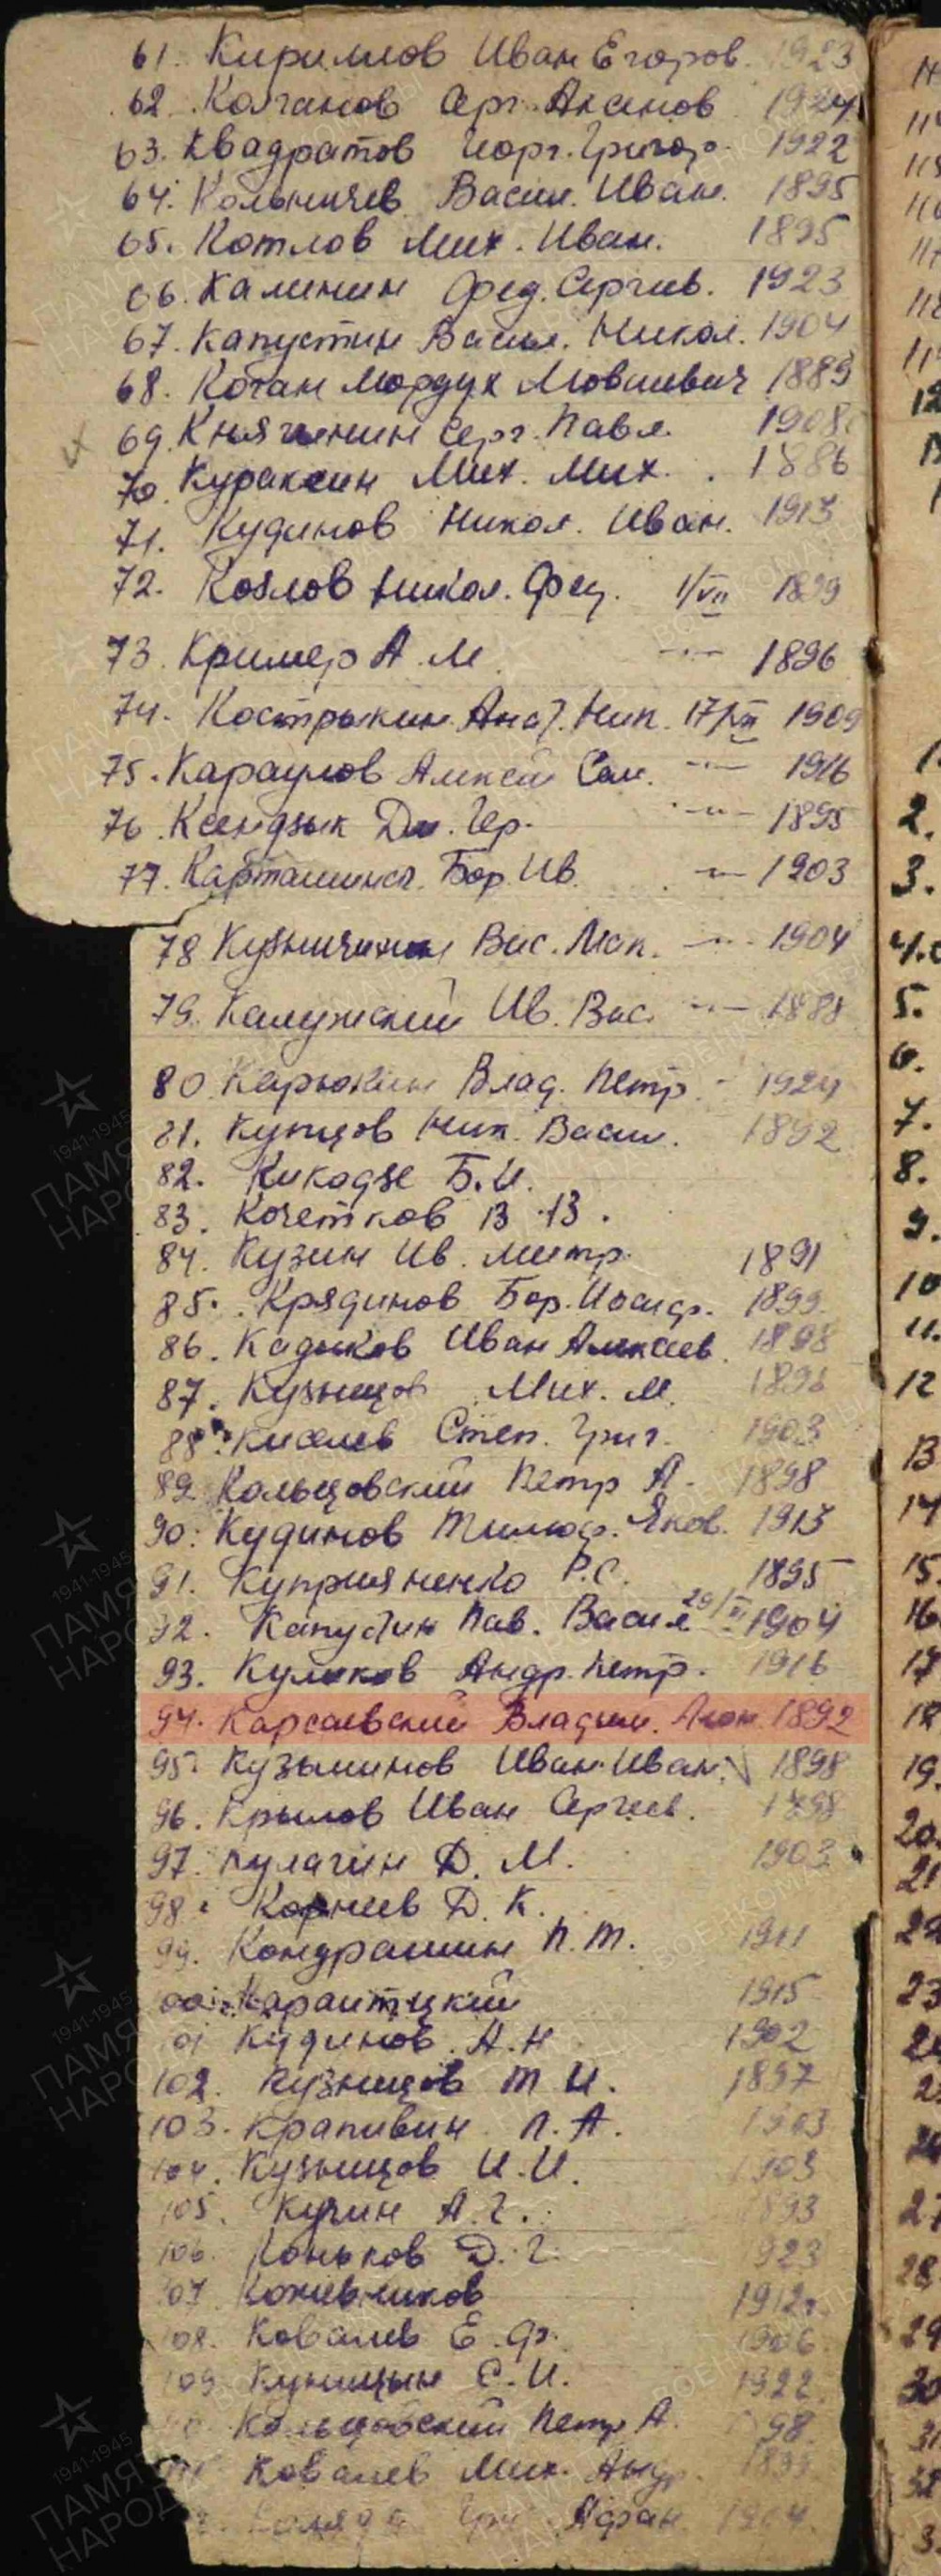 61. Кириллов Иван Егоров. 1923
62. Колчанов Серг. Аксенов 1924
63. Квадратов Георг. Григор. 1922
64. Колычев Васил. Иван. 1895
65. Котлов Мих. Иван. 1895
66. Калинин Фед. Сергеев. 1923
67. Капустин Васил. Никол. 1904
68. Коган Мордух Мовшевич 1889
69. Княгинин Серг. Павл. 1908
70. Куракин Мих. Мих. 1886
71. Кудинов Никол. Иван. 1913
72. Козлов Никол. Фед. 1/VII 1899
73. Кример А.М. —"— 1896
74. Кострыкин Анат. Ник. 17/VII 1909
75. Караулов Алексей Сам. —"— 1916
76. Ксендзык Дм. Гер. —"— 1895
77. Карташинск. Бор. Ив. —"— 1903
78 Вас. —"— 1904
79. Калужский Ив. Вас. —"— 1888
80. Карюкин Влад. Петр. 1924
81. Купцов Ник. Васил. 1892
82. Кикодзе Б.И.
83. Кочетков В.В.
84. Кузин Ив. Митр. 1891
85. Крядинов Бор. Иосиф. 1899
86. Кадыков Иван Алексеев. 1898
87. Кузнецов Мих. М.
88. Киселев Степ. Григ. 1903
89. Кольцовский Петр А. 1898
90. Кудинов Тимоф. Яков. 1913
91. Куприяненко Р.С. 1895
92. Капустин Пав. Васил 1904
93. Куликов Андр. Петр. 1916
94. Карсаевский Владим. 1892
95. Кузьминов Иван Иван. 1898
96. Крылов Иван Сергеев. 1898
97. Кулагин Д. М. 1903
98. Корнеев Д. К.
99. Кондрашин П.Т. 1911
00. Караитцкий 1915
01 Кудинов А.Н 1902
102. Кузнецов Т И. 1897
103. Крапивин П.А. 1903
104. Кузнецов И.И. 1903
105. Кучин А.Г. 893
106. Коньков Д.Г. 923
107 Кожевников 1912
108. Ковалев Е.Ф. 1906
109 Куницын С.И. 1922
Кольцовский Петр А. 98
Ковалев Мих. Андр.
Афан 1904
2.
3.
5.
6.
7.
8.
9.
10
11.
12
13
14
15.
16
17
18
19.
20.
21
22
23
27
28.
29
30
31
32
3.
1941-1945
ПАМЯТЬ
НАРОДА